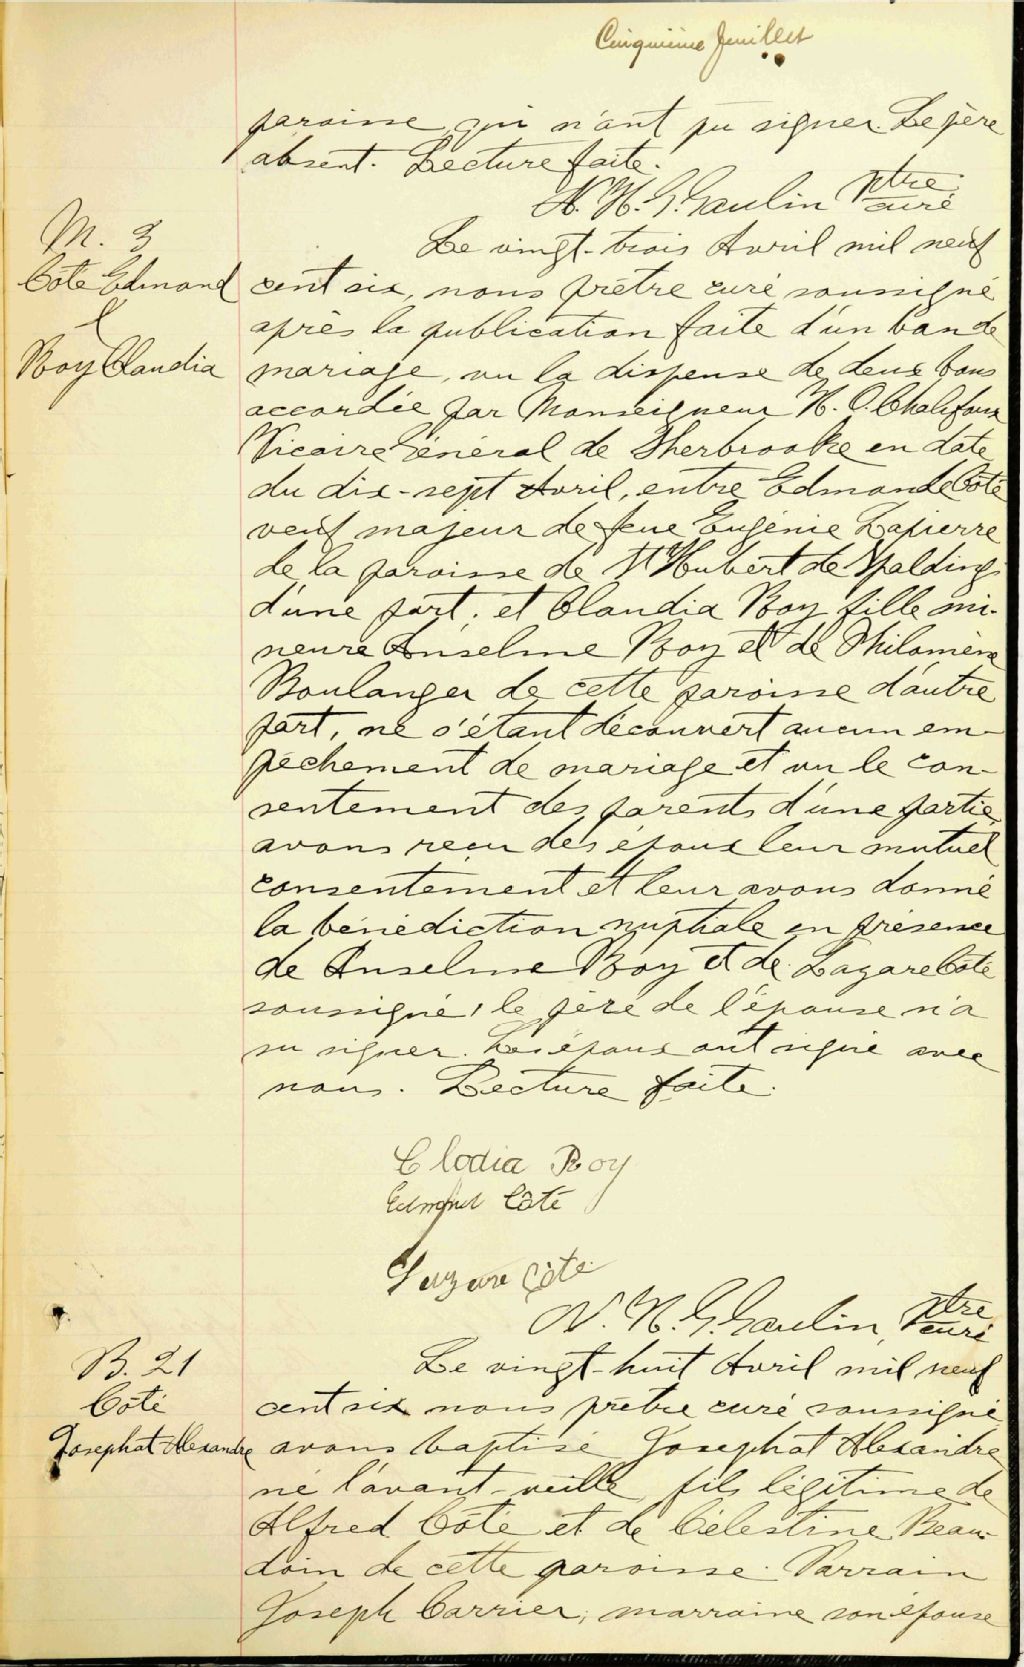 Cinquième feuillet
paroisse, qui n'ont pu signer. Le père
absent. Lecture faite.
N. H. G. Gaulin Ptre
curé
M. 3
Côté Edmond
&
Roy Claudia
Le vingt-trois Avril mil neuf
cent six, nous prêtre curé soussigné
après la publication faite d'un ban de
mariage, vu la dispense de deux bans
accordée par Monseigneur H. O. Chalifoux
Vicaire Général de Sherbrooke en date
du dix-sept Avril, entre Edmond Côté
veuf majeur de feue Eugénie Lapierre
de la paroisse de St Hubert de Spalding
d'une part, et Claudia Roy fille mi-
neure Anselme Roy et de Philomène
Boulanger de cette paroisse d'autre
part, ne s'étant découvert aucun em-
pêchement de mariage et vu le con-
sentement des parents d'une partie,
avons reçu des époux leur mutuel
consentement et leur avons donné
la bénédiction nuptiale en présence
de Anselme Roy et de Lazare Côté
soussigné, le père de l'épouse n'a
su signer. Les époux ont signé avec
nous. Lecture faite.
Clodia Roy
Edmond Côté
Lazare Côté
N. H. G. Gaulin, Ptre
curé
B. 21
Côté
Josephat Alexandre
Le vingt-huit Avril mil neuf
cent six nous prêtre curé soussigné
avons baptisé Josephat Alexandre
né l'avant-veille, fils légitime de
Alfred Côté et de Célestine Beau-
doin de cette paroisse. Parrain
Joseph Carrier, marraine son épouse